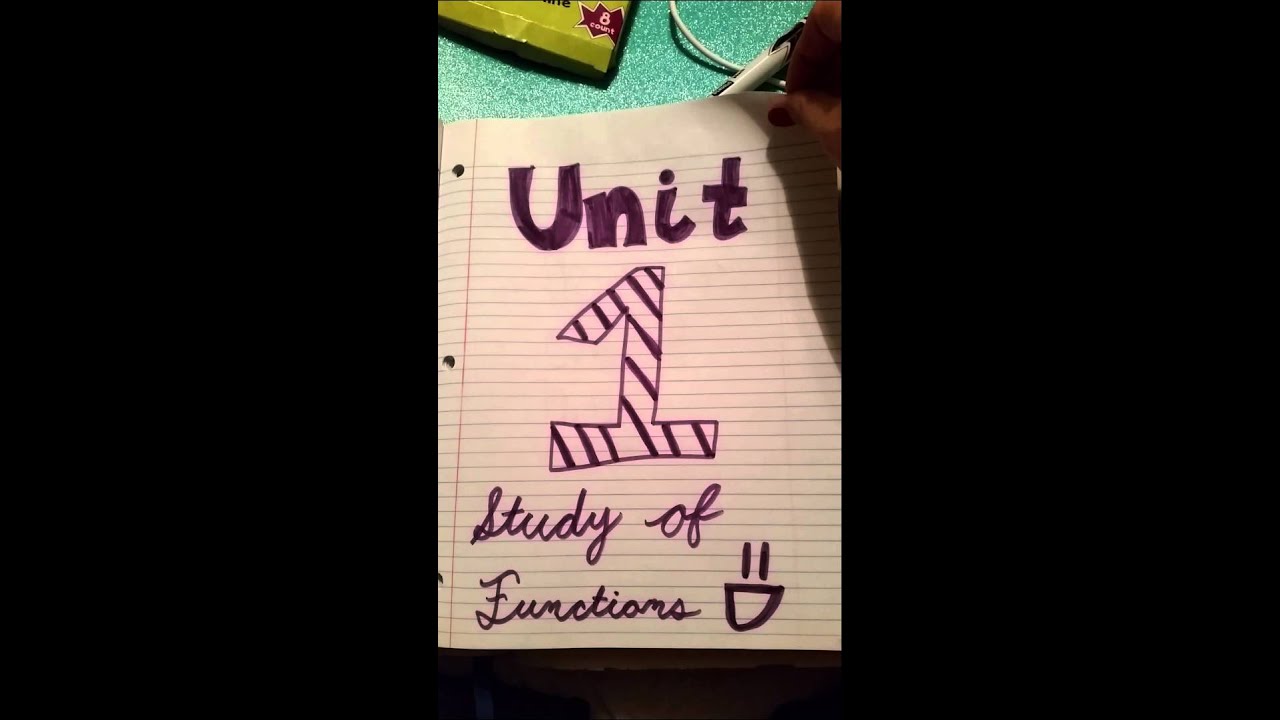 8
count
Unit
1
Study of
Functions